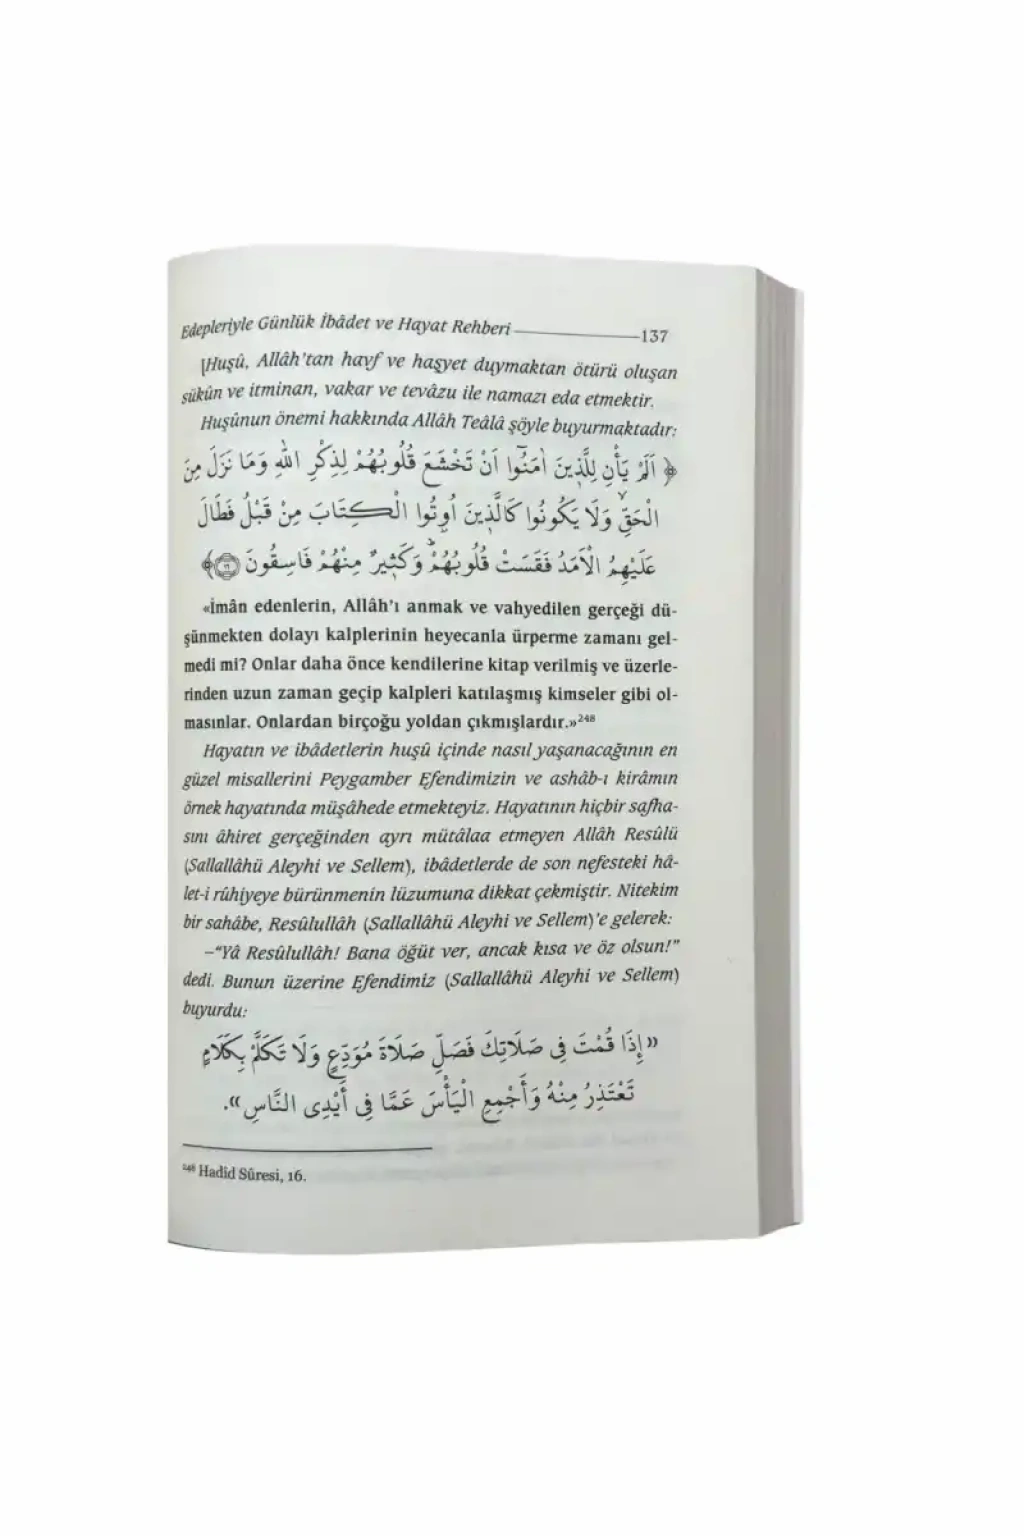 Edepleriyle Günlük İbâdet ve Hayat Rehberi 137
[Huşû, Allâh'tan havf ve haşyet duymaktan ötürü oluşan
sükûn ve itminan, vakar ve tevâzu ile namazı eda etmektir.
Huşûnun önemi hakkında Allâh Teâlâ şöyle buyurmaktadır:
﴿ اَلَمْ يَأْنِ لِلَّذِينَ اٰمَنُٓوا اَنْ تَخْشَعَ قُلُوبُهُمْ لِذِكْرِ اللّٰهِ وَمَا نَزَلَ مِنَ
الْحَقِّۙ وَلَا يَكُونُوا كَالَّذِينَ اُوتُوا الْكِتَابَ مِنْ قَبْلُ فَطَالَ
عَلَيْهِمُ الْاَمَدُ فَقَسَتْ قُلُوبُهُمْۜ وَكَثِيرٌ مِنْهُمْ فَاسِقُونَ ﴿١٦﴾﴾
«İmân edenlerin, Allâh'ı anmak ve vahyedilen gerçeği dü-
şünmekten dolayı kalplerinin heyecanla ürperme zamanı gel-
medi mi? Onlar daha önce kendilerine kitap verilmiş ve üzerle-
rinden uzun zaman geçip kalpleri katılaşmış kimseler gibi ol-
masınlar. Onlardan birçoğu yoldan çıkmışlardır.»²⁴⁸
Hayatın ve ibâdetlerin huşû içinde nasıl yaşanacağının en
güzel misallerini Peygamber Efendimizin ve ashâb-ı kirâmın
örnek hayatında müşâhede etmekteyiz. Hayatının hiçbir safha-
sını âhiret gerçeğinden ayrı mütâlaa etmeyen Allâh Resûlü
(Sallallâhü Aleyhi ve Sellem), ibâdetlerde de son nefesteki hâ-
let-i rûhiyeye bürünmenin lüzumuna dikkat çekmiştir. Nitekim
bir sahâbe, Resûlullâh (Sallallâhü Aleyhi ve Sellem)'e gelerek:
–"Yâ Resûlullâh! Bana öğüt ver, ancak kısa ve öz olsun!"
dedi. Bunun üzerine Efendimiz (Sallallâhü Aleyhi ve Sellem)
buyurdu:
«إِذَا قُمْتَ فِى صَلَاتِكَ فَصَلِّ صَلَاةَ مُوَدِّعٍ وَلَا تَكَلَّمْ بِكَلَامٍ
تَعْتَذِرُ مِنْهُ وَأَجْمِعِ الْيَأْسَ عَمَّا فِى أَيْدِى النَّاسِ».
²⁴⁸ Hadîd Sûresi, 16.